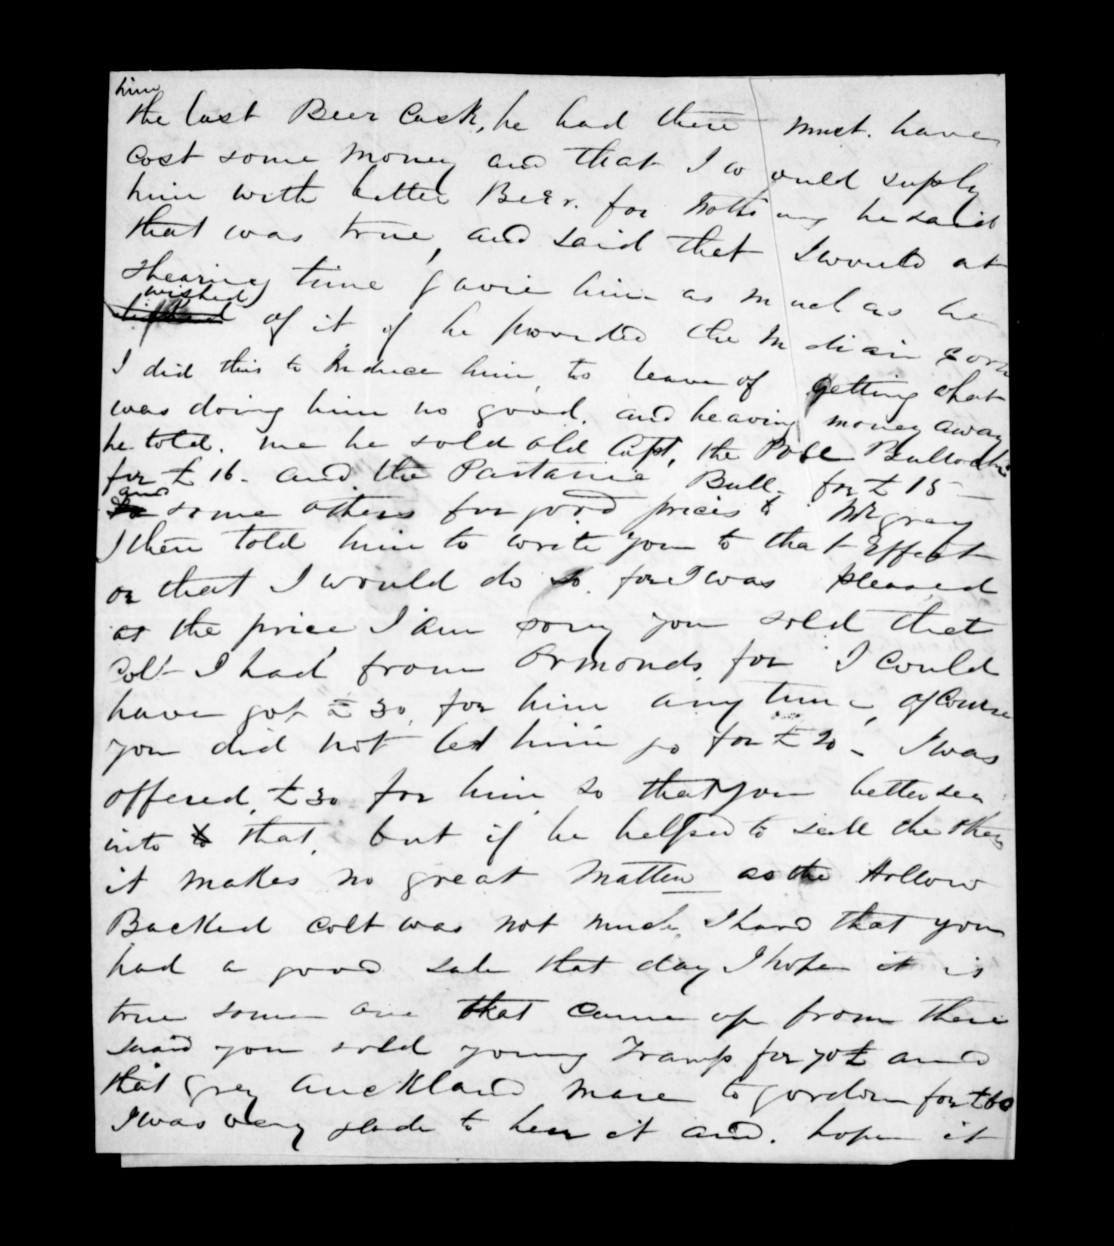 him
the last Beer Cask, he had there must. have
cost some money and that I would supply
him with better Beer. for Nothing he said
that was true, and said that I would at
shearing time gavie him as much as he
wished
of it if he provided the Indian corn
I did this to Induce him, to leave of getting what
was doing him no good. and heaving money away
he told. me he sold old Capt, the Pole Bullocks
for £16 - and the Bull - for £15 -
and
some others for good prices to Mcgray
I then told him to write you to that Effect
or that I would do so. for I was pleased
at the price, I am sorry you sold that
colt - I had from Ormonds, for I could
have got £30, for him any time, of Course
you did not led him go for £20 - I was
offered, £30 for him, so that you better see
into that, but if he helped to sell the others
it makes no great Matter as the Hollow
Backed colt was not much, I hard that you
had a good sale that day I hope it is
true some one that came up from there
said you sold young Tramp for 70£ and
that grey auckland mare to gordon for £60
I was very glade to hear it and. hope it